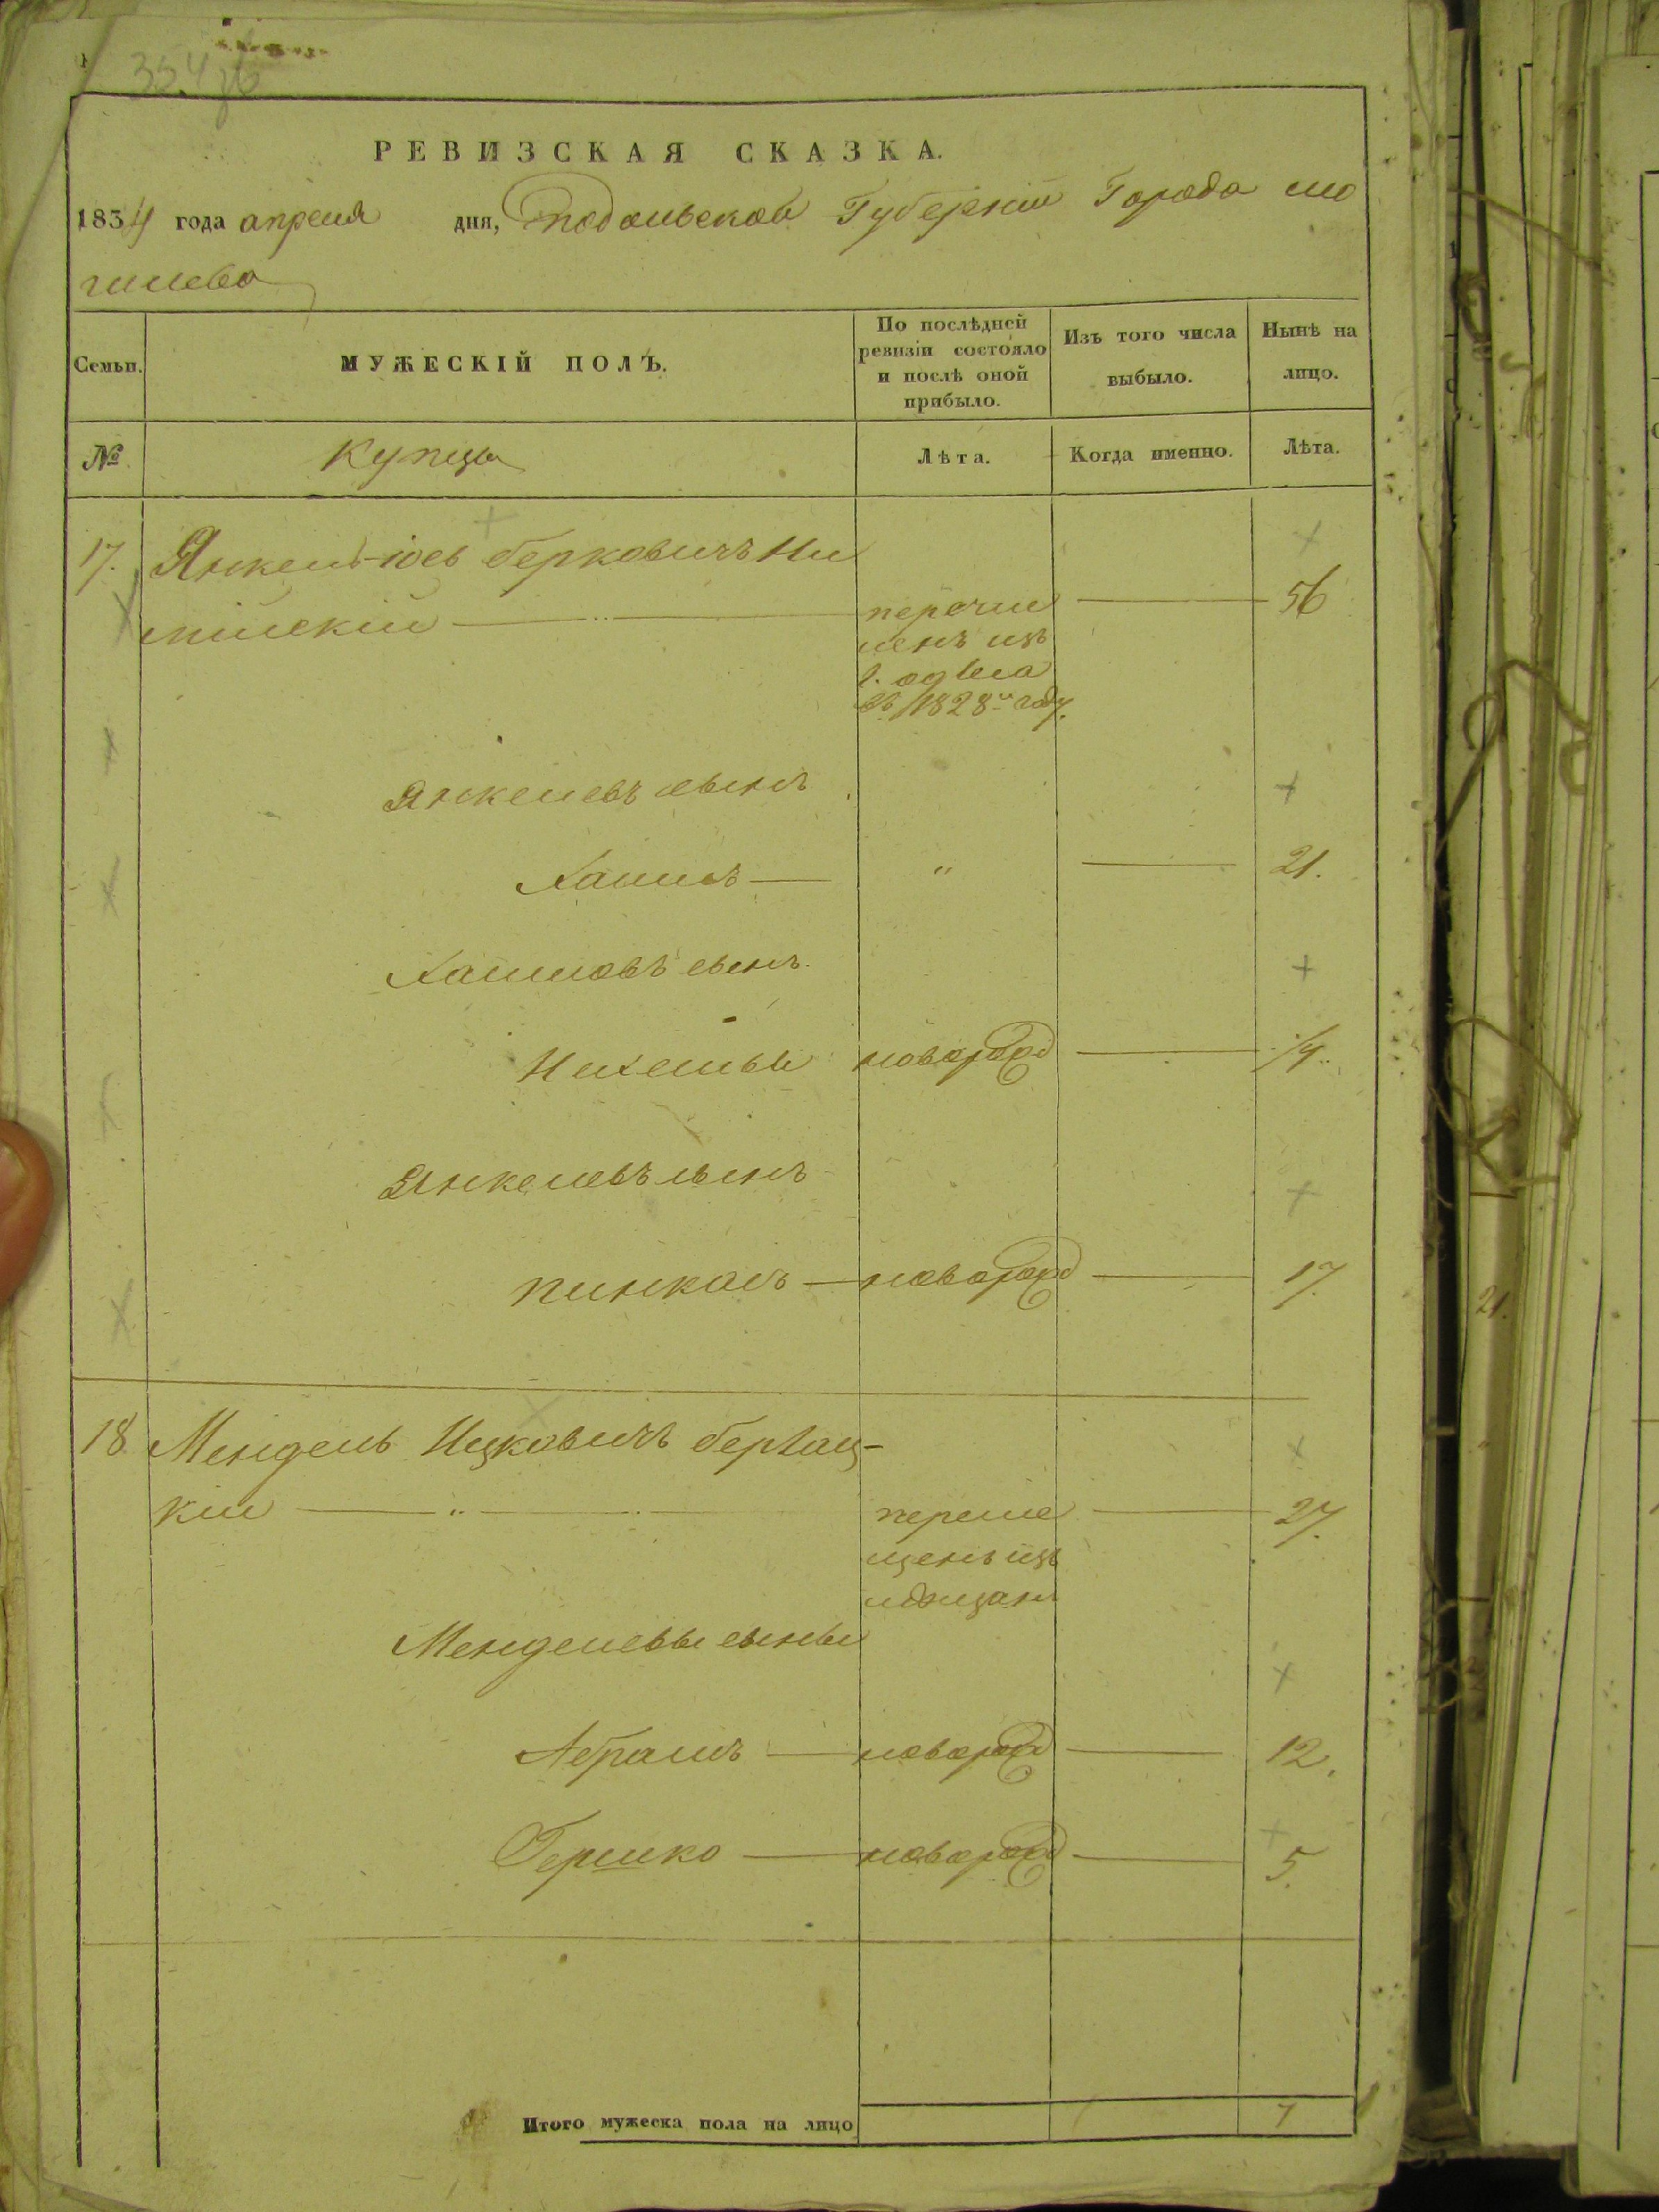 РЕВИЗСКАЯ СКАЗКА.
1834 года апреля дня, Подольской Губерніи Города Мо
гилева
Семьи.
МУЖЕСКІЙ ПОЛЪ.
По послѣдней
ревизіи состояло
и послѣ оной
прибыло.
Изъ того числа
выбыло.
Нынѣ на
лицо.
№
Купцы
Лѣта.
Когда именно.
Лѣта.
17. Янкель-Іось Берковичъ
перечис 56
ленъ изъ
г. Одеса
въ 1828м году.
Янкелевъ сынъ
Хаимъ — " — 21.
Хаимовъ сынъ
новорожд — 1/4.
Янкелевъ сынъ
Пинкасъ — новорожд — 17.
18 Мендель Ицковичъ
кій — переме — 27.
щенъ изъ
мѣщанъ
Менделевы сыны
Абрамъ — новорожд — 12.
Гершко — новорожд — 5.
Итого мужеска пола на лицо 7